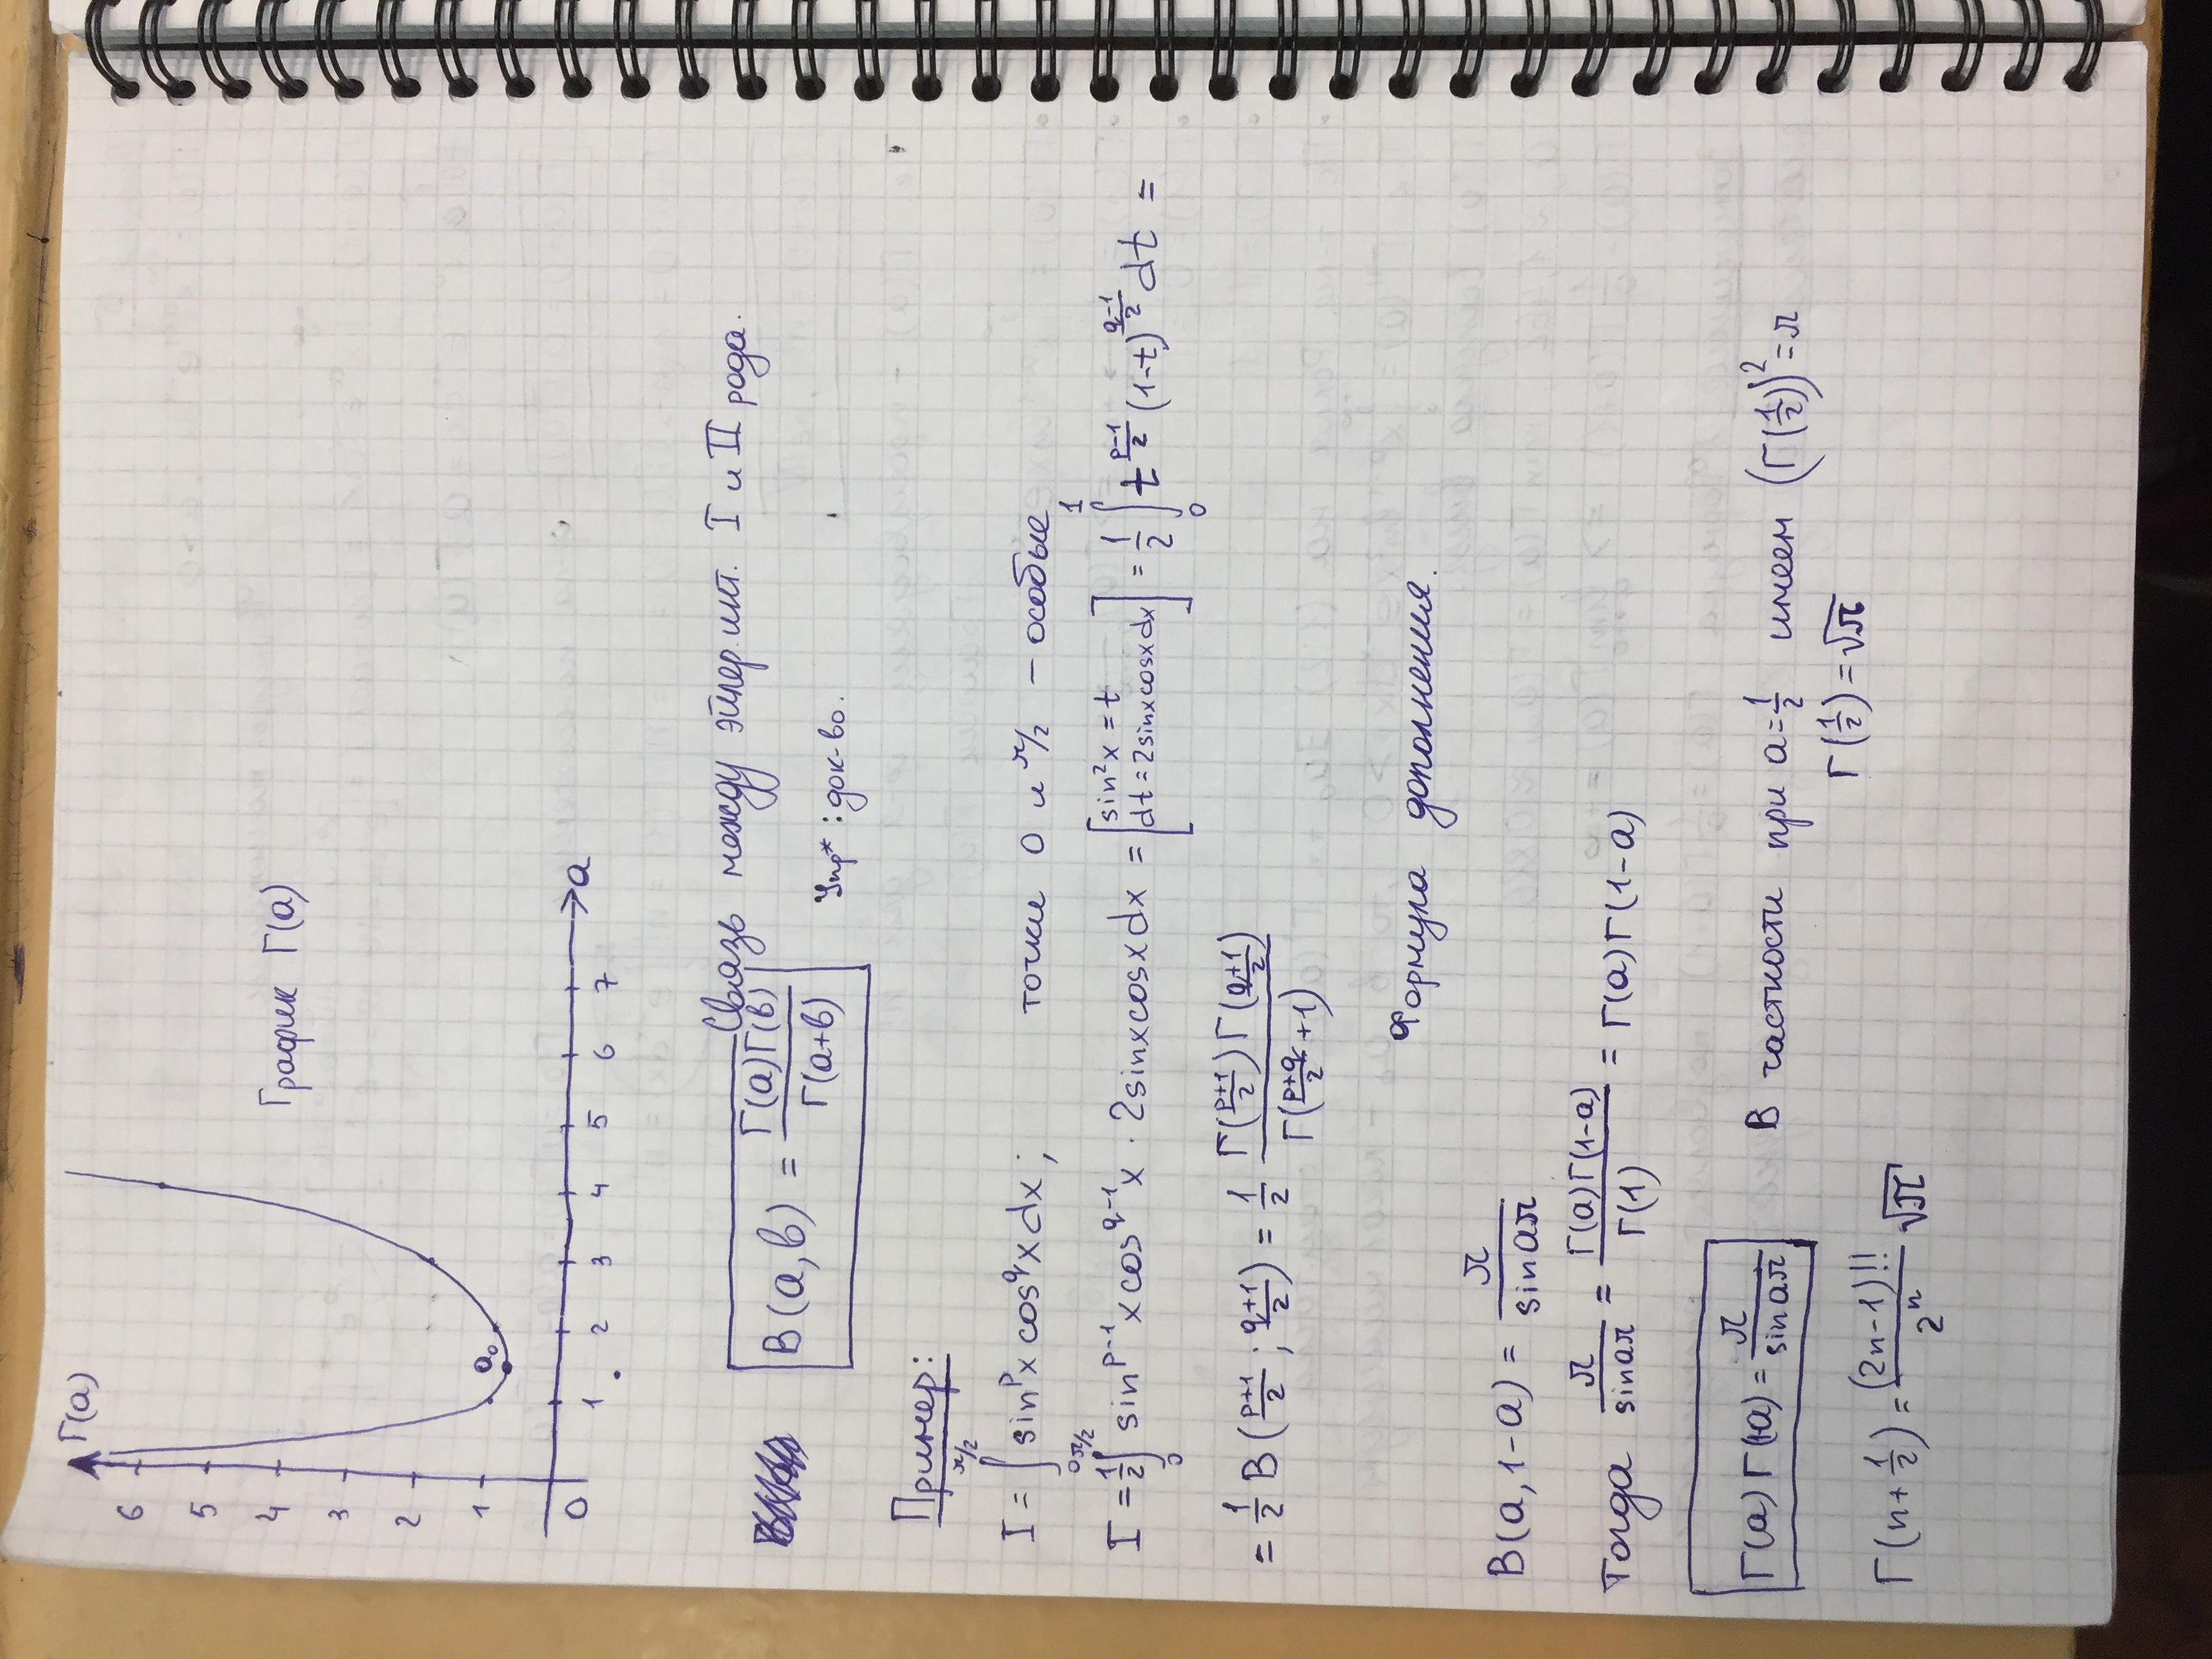 Γ(a)
График Γ(a)
6
5
4
3
2
1
a₀
0 1 2 3 4 5 6 7 a
Связь между эйлер. инт. I и II рода.
B(a,b) = Γ(a)Γ(b)/Γ(a+b)
Упр*: док-во.
Пример:
I = ∫₀^{π/2} sin^p x cos^q x dx; точки 0 и π/2 – особые
I = 1/2 ∫₀^{π/2} sin^{p-1} x cos^{q-1} x · 2sinxcosxdx = [sin²x = t dt = 2sinxcosxdx] = 1/2 ∫₀¹ t^{(p-1)/2} (1-t)^{(q-1)/2} dt =
= 1/2 B((p+1)/2 ; (q+1)/2) = 1/2 Γ((p+1)/2)Γ((q+1)/2)/Γ((p+q)/2+1)
Формула дополнения.
B(a,1-a) = π/sin aπ
Тогда π/sin aπ = Γ(a)Γ(1-a)/Γ(1) = Γ(a)Γ(1-a)
Γ(a)Γ(1-a) = π/sin aπ
В частности при a=1/2 имеем (Γ(1/2))² = π
Γ(1/2) = √π
Γ(n+1/2) = (2n-1)!!/2ⁿ √π